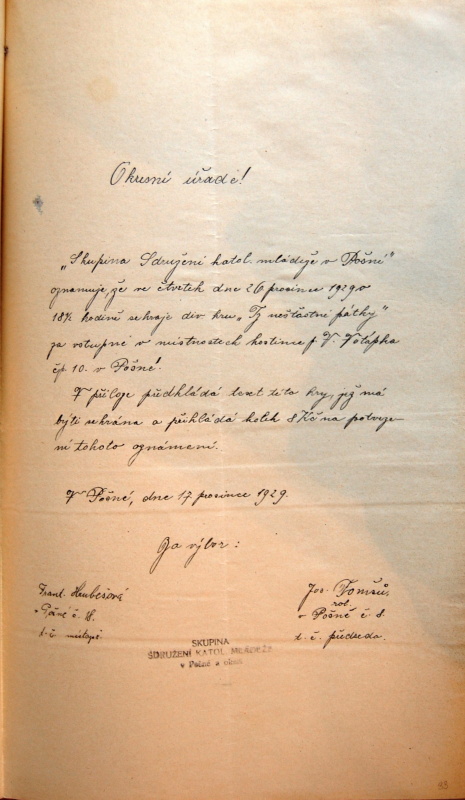 Okresní úřade!
„Skupina Sdružení katol. mládeže v Pošné"
oznamuje, že ve čtvrtek dne 26 prosince 1929 o
18½ hodině sehraje div. hru „Ty nešťastní pátky"
za vstupné v místnostech hostince p. V. Votápka
čp. 10. v Pošné.
V příloze předkládá text této hry, jež má
býti sehrána a přikládá kolek 8 Kč na potvrze-
ní tohoto oznámení.
V Pošné, dne 17 prosince 1929.
Za výbor:
Frant. Hrubešová
v Pošné č. 18.
t. č. místopř.
Jos. Tomšů,
rol.
v Pošné č. 8.
t. č. předseda.
SKUPINA
SDRUŽENÍ KATOL. MLÁDEŽE
v Pošné a okolí
83